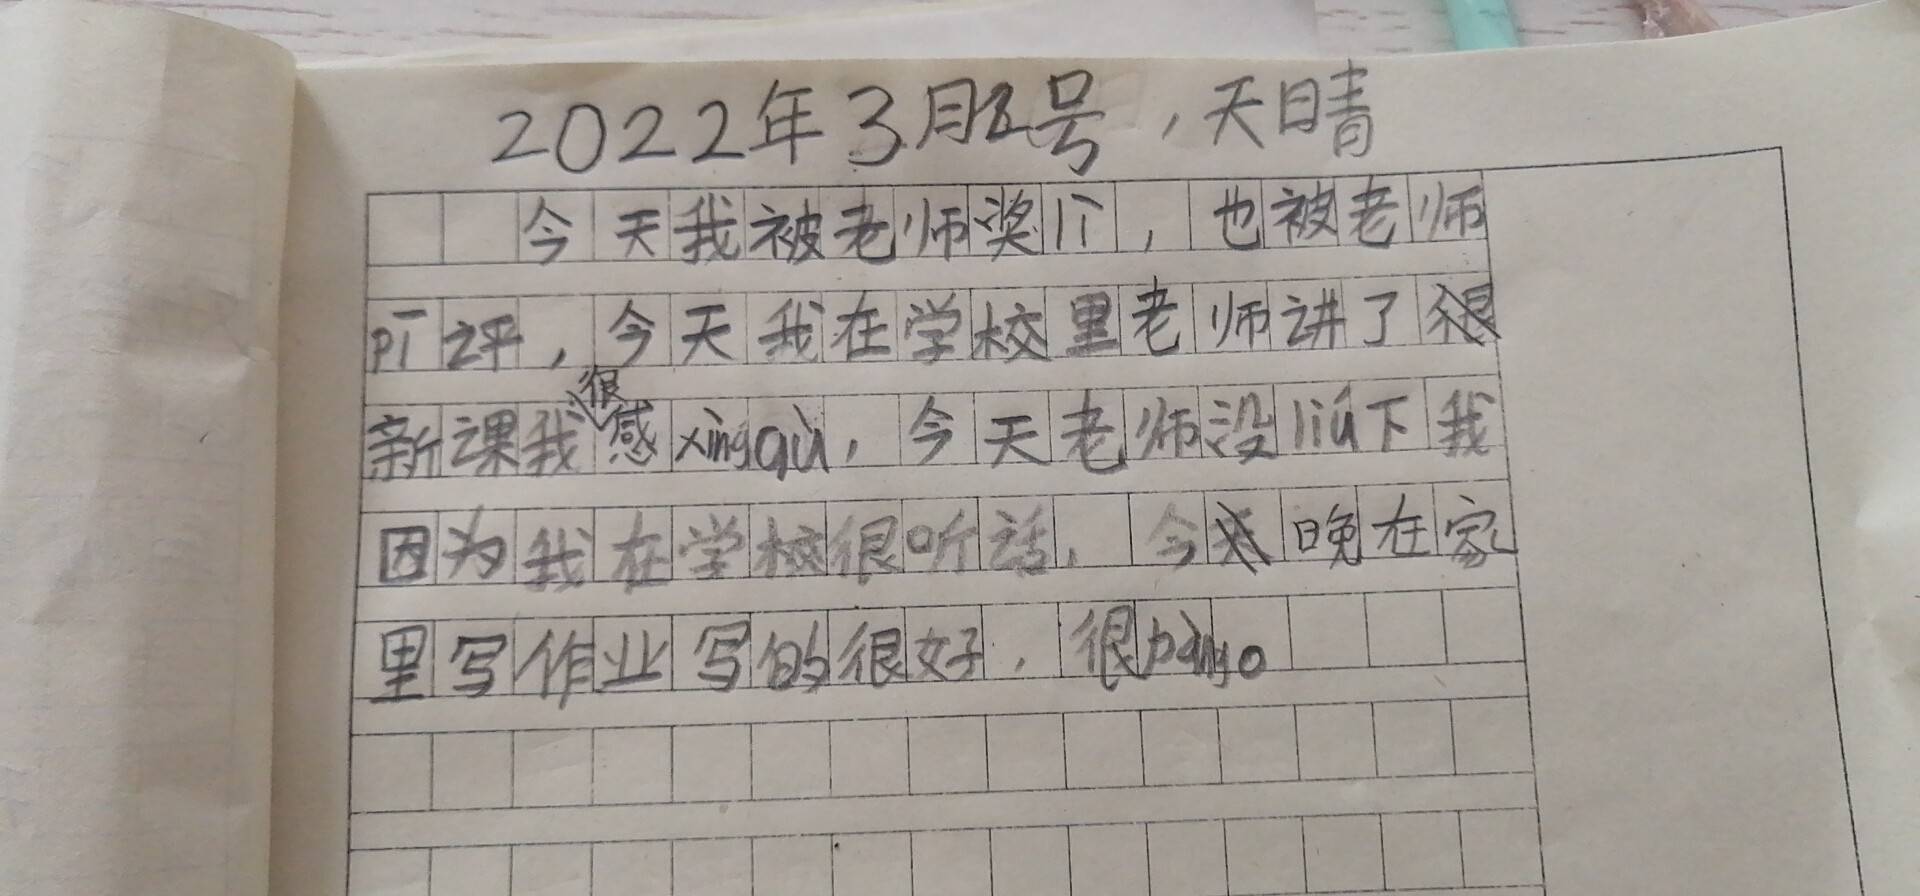 2022年3月2号,天晴
今天我被老师奖lì,也被老师
pī评,今天我在学校里老师讲了
新课我很感xìngqù,今天老师没liú下我
因为我在学校很听话,今晚在家
里写作业写的很好,很bàng。